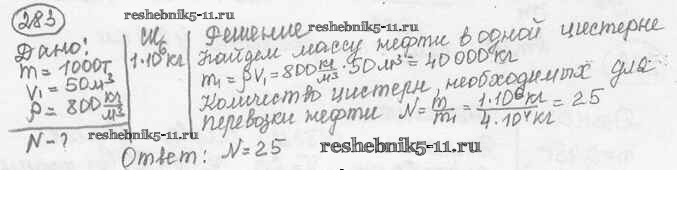 283
reshebnik5-11.ru
Дано:
m = 1000т
V₁ = 50м³
ρ = 800 кг/м³
N - ?
СИ
1·10⁶кг
reshebnik5-11.ru
Решение
Найдем массу нефти в одной цистерне
m₁ = ρV₁ = 800 кг/м³ · 50м³ = 40000кг
Количество цистерн, необходимых для
перевозки нефти N = m/m₁ = 1·10⁶кг/4·10⁴кг = 25
reshebnik5-11.ru
reshebnik5-11.ru
Ответ: N = 25
reshebnik5-11.ru